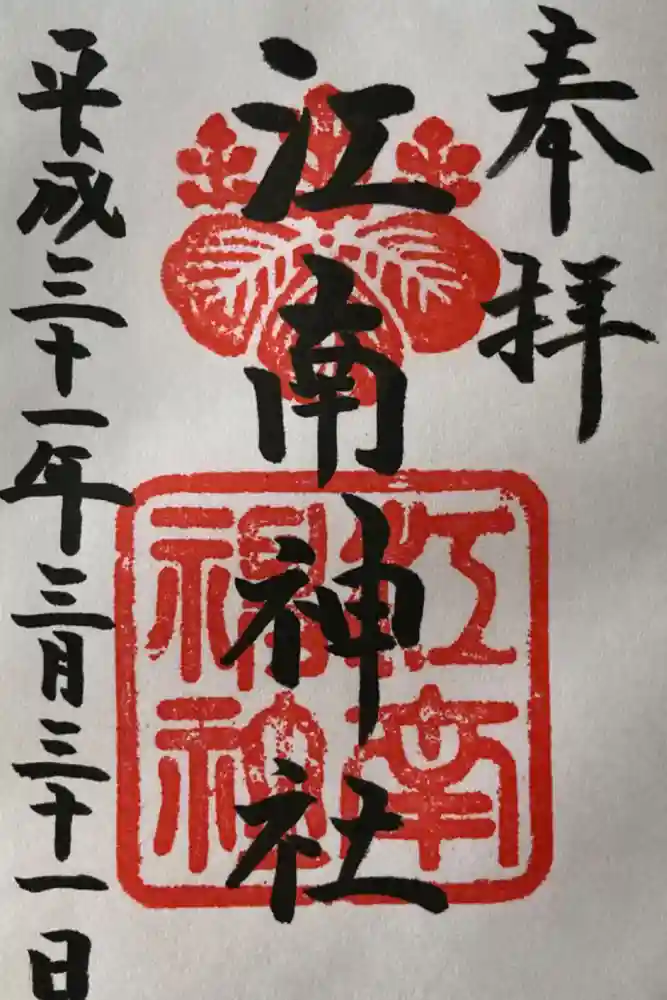 奉拝
江南神社
江南神社
平成三十一年三月三十一日